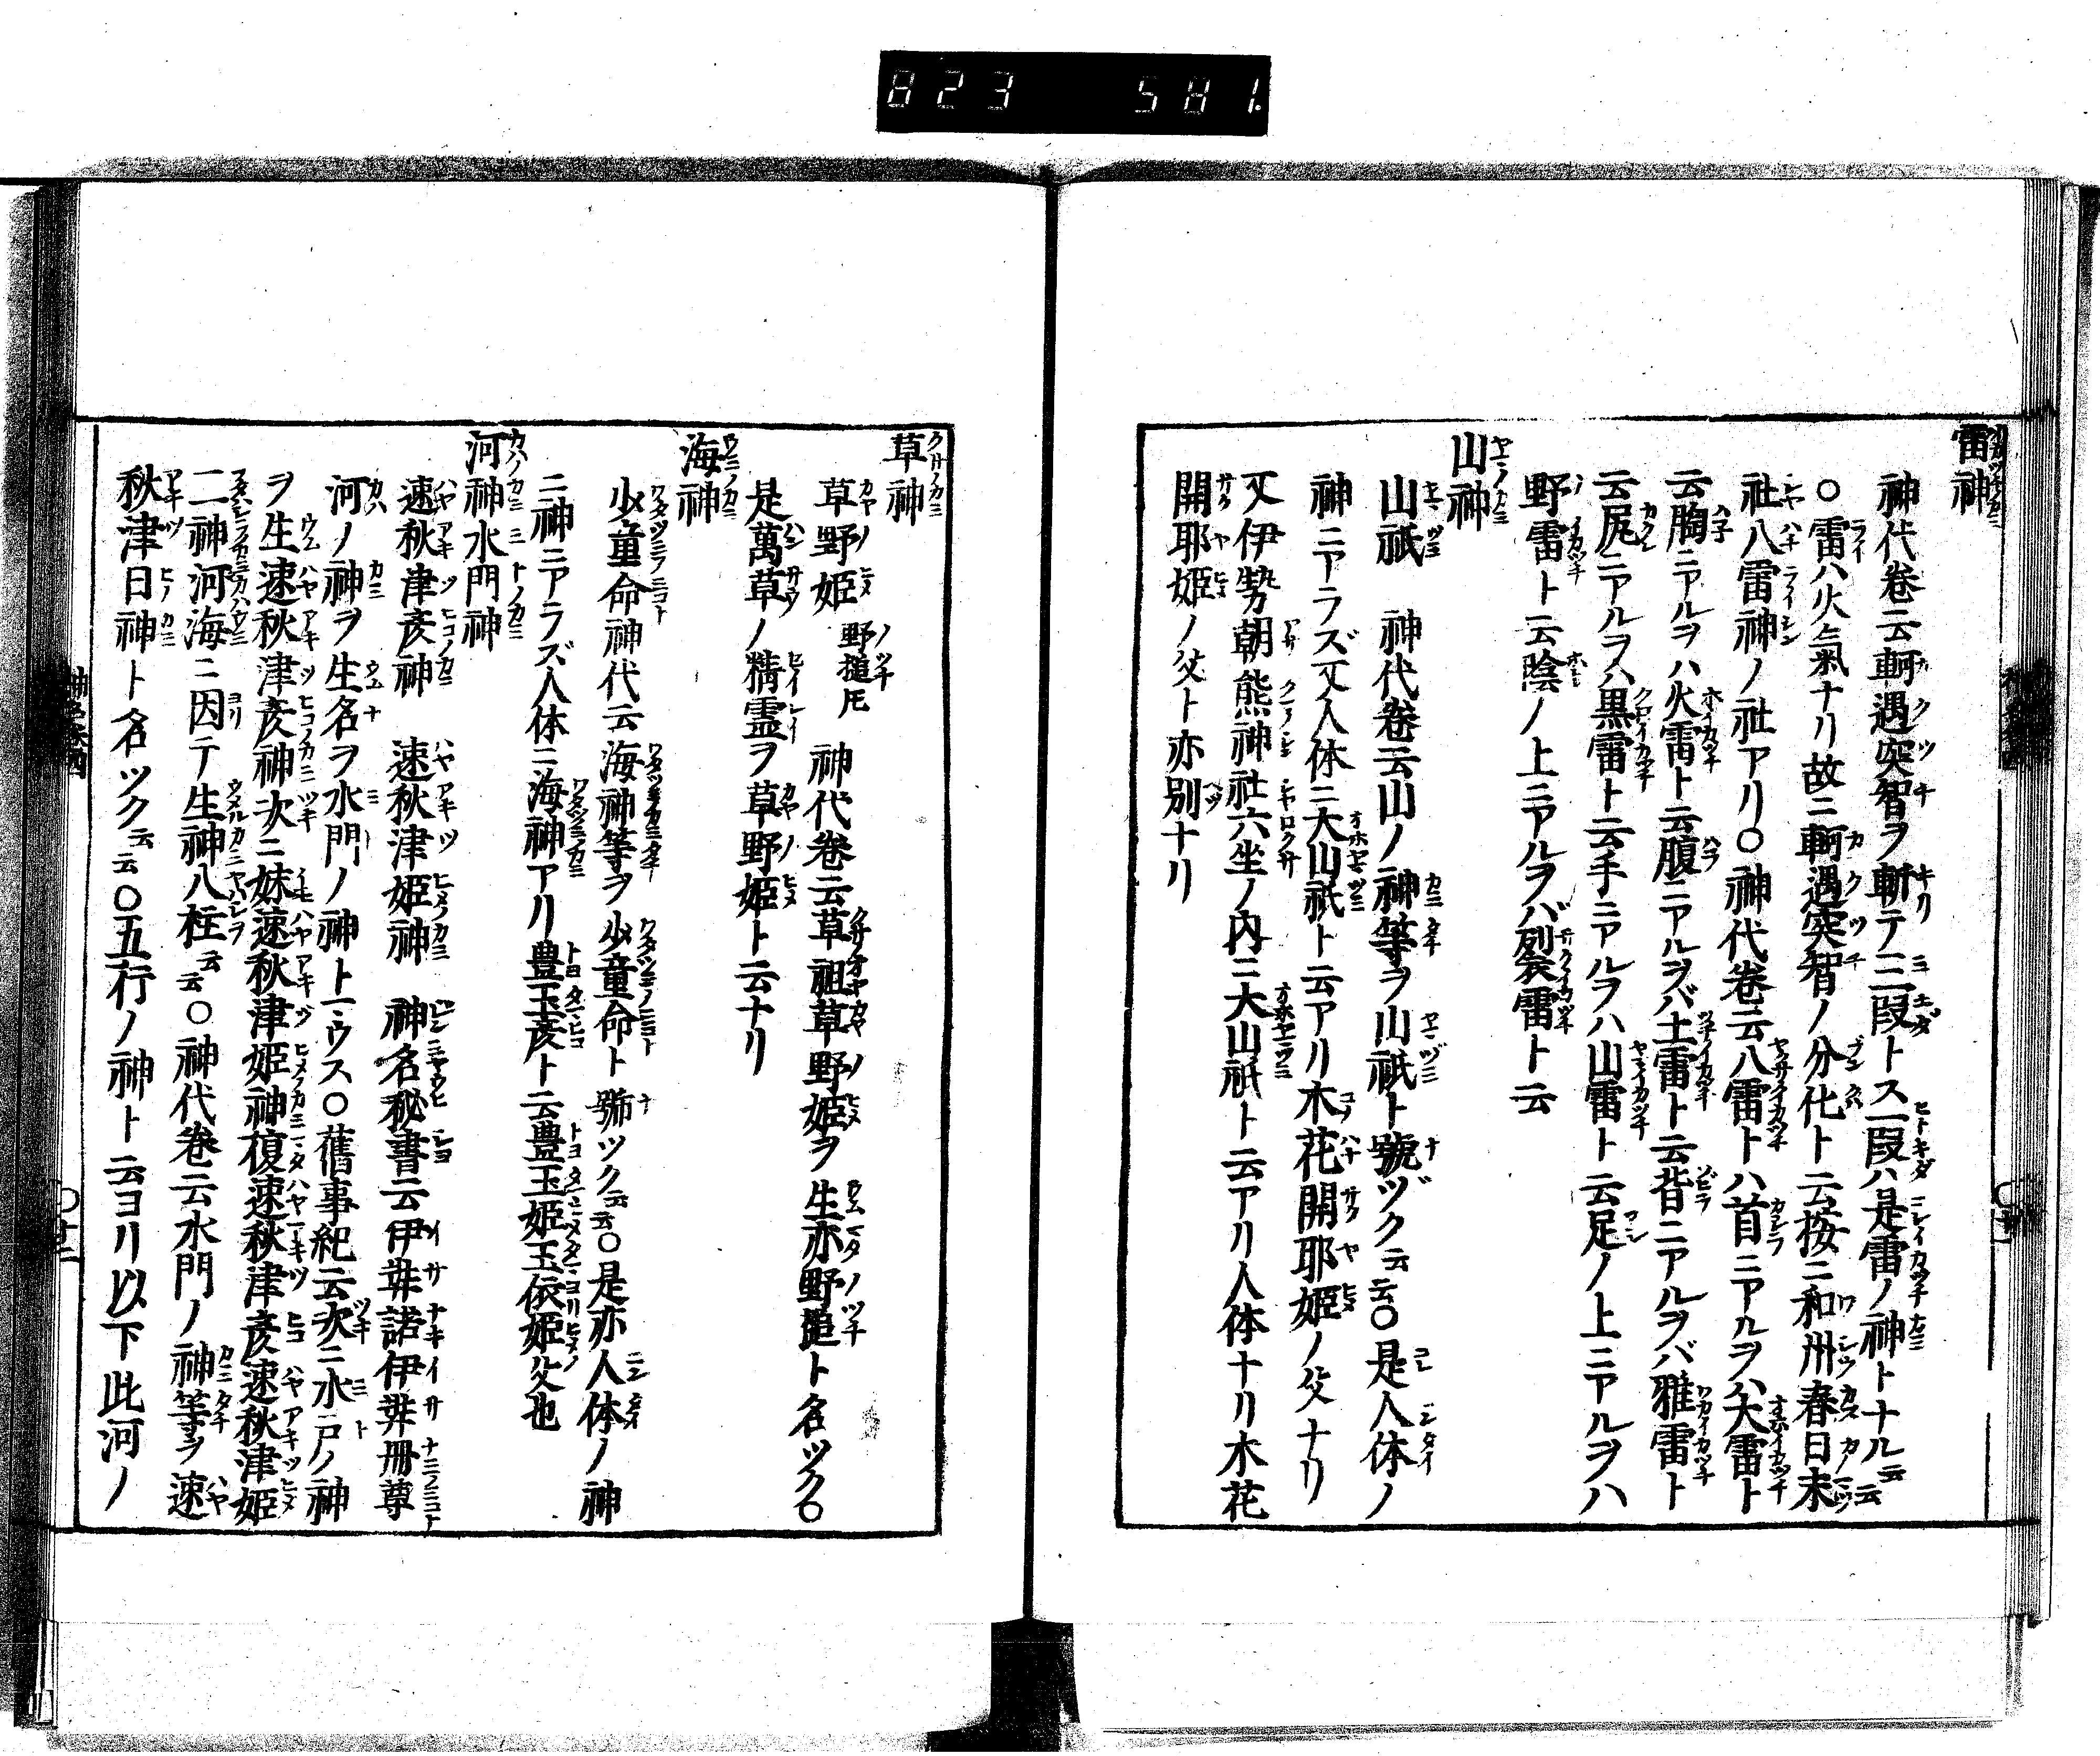 823 581.
雷神
神代巻云軻遇突智ヲ斬テ三段トス一段ハ是雷ノ神トナル云云
○雷ハ火氣ナリ故ニ軻遇突智ノ分化ト云按ニ和州春日末
社八雷神ノ社アリ○神代巻云八雷トハ首ニアルヲハ大雷ト
云胸ニアルヲハ火雷ト云腹ニアルヲバ土雷ト云背ニアルヲバ雅雷ト
云尻ニアルヲハ黒雷ト云手ニアルヲハ山雷ト云足ノ上ニアルヲハ
野雷ト云陰ノ上ニアルヲバ裂雷ト云
山神
山祇 神代巻云山ノ神等ヲ山祇ト號ヅク云云○是人体ノ
神ニアラズ又人体ニ大山祇ト云アリ木花開耶姫ノ父ナリ
又伊勢朝熊神社六坐ノ内ニ大山祇ト云アリ人体ナリ木花
開耶姫ノ父ト亦別ナリ
草神
草野姫 野槌氏 神代巻云草祖草野姫ヲ生亦野槌ト名ツク○
是萬草ノ精霊ヲ草野姫ト云ナリ
海神
少童命神代云海神等ヲ少童命ト號ツク云云○是亦人体ノ神
ニ神ニアラズ人体ニ海神アリ豊玉彦ト云豊玉姫玉依姫父也
河神水門神
速秋津彦神 速秋津姫神 神名秘書云伊弉諾伊弉冊尊
河ノ神ヲ生名ヲ水門ノ神トマウス○舊事紀云次ニ水戸ノ神
ヲ生速秋津彦神次ニ妹速秋津姫神復速秋津彦速秋津姫
二神河海ニ因テ生神八柱云云○神代巻云水門ノ神等ヲ速
秋津日神ト名ツク云云○五行ノ神ト云ヨリ以下此河ノ